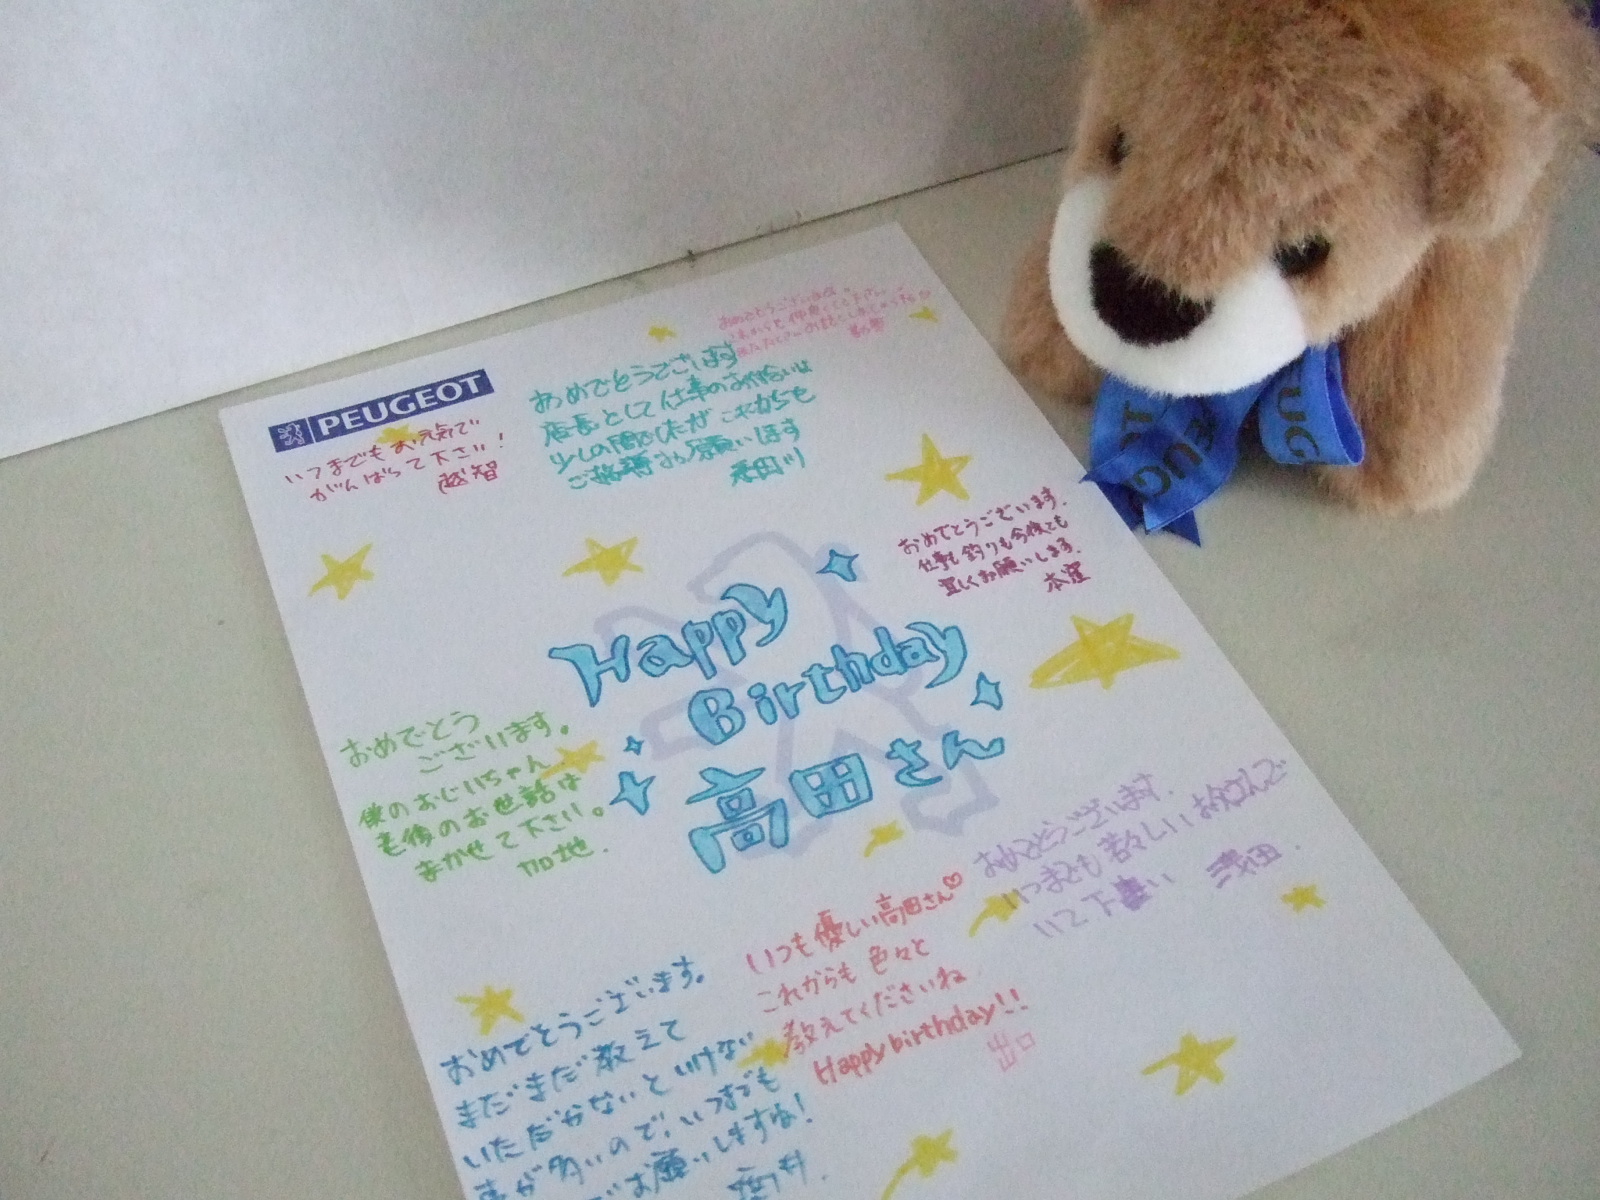 PEUGEOT
いつまでもお元気で
がんばって下さい!
越智
おめでとうございます
おめでとうございます
店長として仕事のお付合いは
少しの間でしたが これからも
ご指導お願いします
おめでとうございます.
仕事も釣りも今後とも
宜しくお願いします.
本窪
Happy
Birthday
高田さん
おめでとう
ございます。
僕のおじいちゃん
老後のお世話は
まかせて下さい。
加地.
おめでとうございます.
いつまでも若々しいお父さんで
いて下さい
浅田.
いつも優しい高田さん♡
これからも色々と
教えてくださいね
Happy birthday!!
出口
おめでとうございます。
まだまだ教えて
いただかないといけない
事が多いので、いつまでも
お願いしますね!